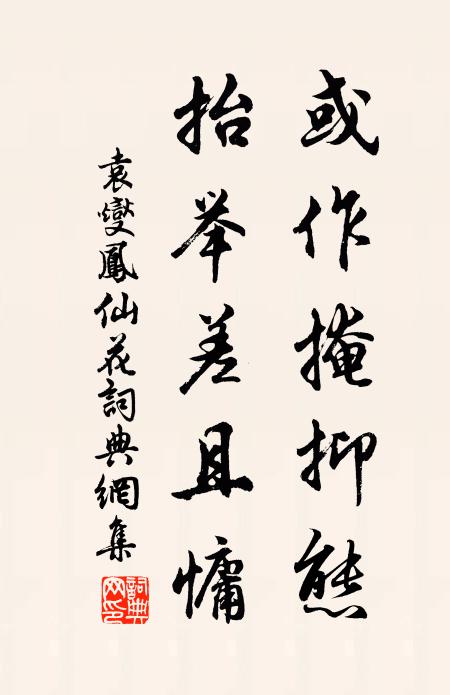 或作掩抑態
抬举差且慵
袁燮鳳仙花詞典網集
詞典网印